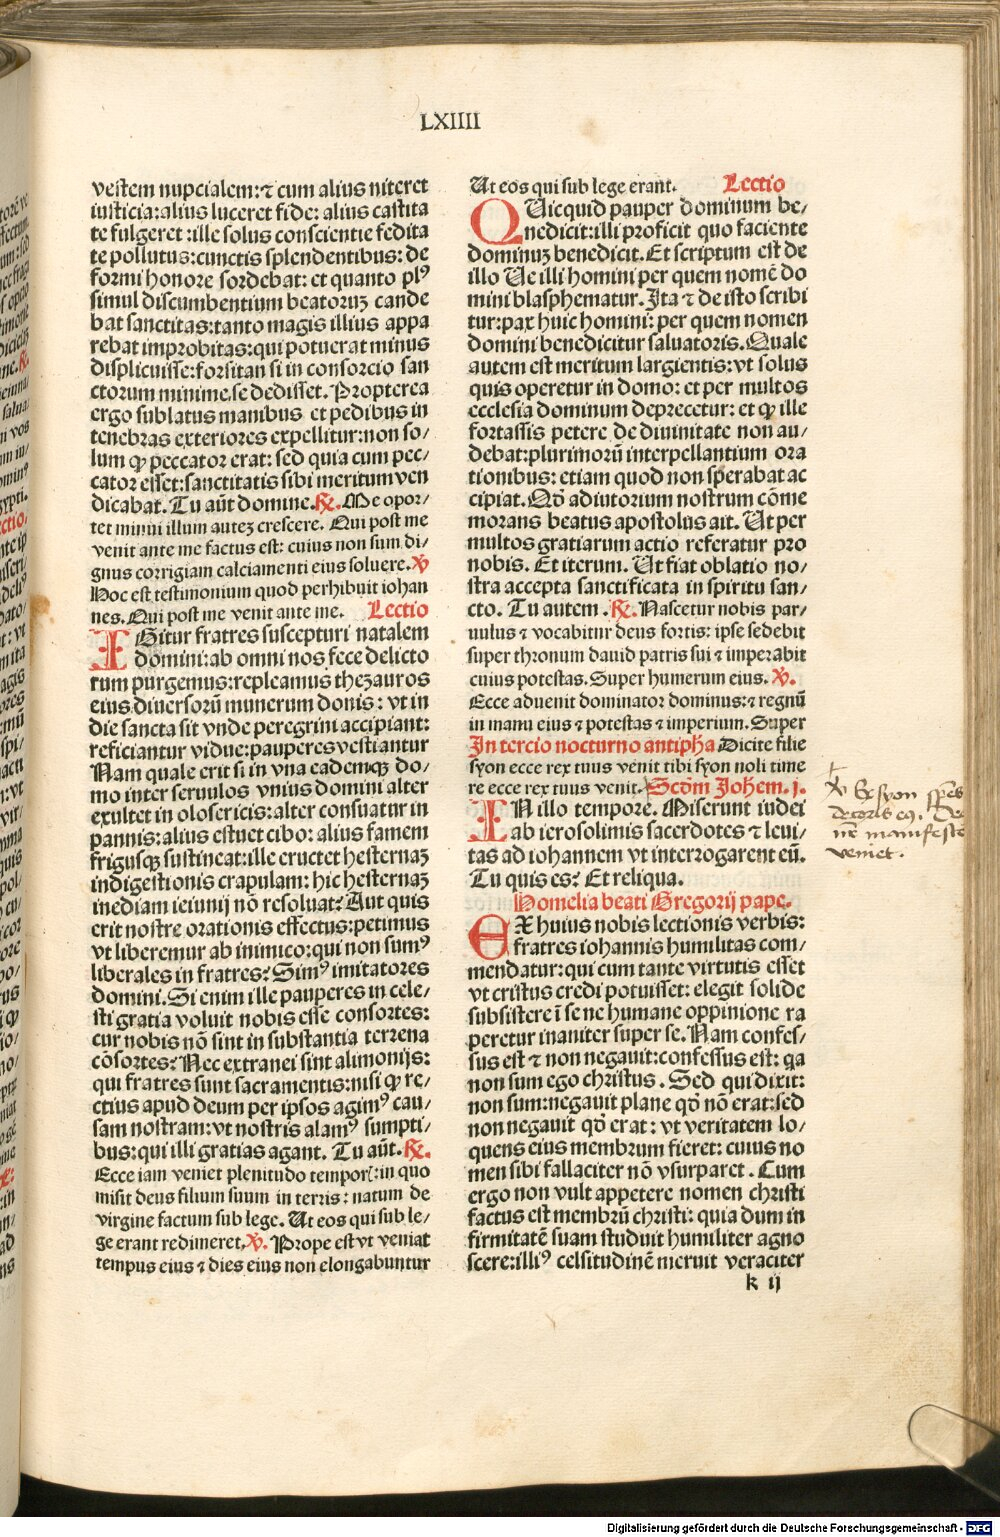 LXIIII
vestem nupcialem:⁊ cum alius niteret
iusticia:alius luceret fide: alius castita
te fulgeret :ille solus conscientie fedita
te pollutus:cunctis splendentibus: de
formi honore sordebat: et quanto plꝰ
simul discumbentium beatoruꝫ cande
bat sanctitas:tanto magis illius appa
rebat improbitas:qui potuerat minus
displicuisse:forsitan si in consorcio san
ctorum minime.se dedisset. Propterea
ergo sublatus manibus et pedibus in
tenebras exteriores expellitur:non so/
lum ꝙ peccator erat: sed quia cum pec/
cator esset:sanctitatis sibi meritum ven
dicabat. Tu aūt domine.℟. Me opor/
tet minui illum auteꝫ crescere. Qui post me
venit ante me factus est: cuius non sum di/
gnus corrigiam calciamenti eius soluere.℣
Hoc est testimonium quod perhibuit iohan
nes. Qui post me venit ante me. Lectio
IGitur fratres suscepturi natalem
domini:ab omni nos fece delicto
rum purgemus:repleamus thezauros
eius diuersorū munerum donis: vt in
die sancta sit vnde peregrini accipiant:
reficiantur vidue:pauperes vestiantur
Nam quale erit si in vna eademqꝫ do/
mo inter seruulos vnius domini alter
exultet in olosericis:alter consuatur in
pannis:alius estuet cibo: alius famem
frigusqꝫ sustineat:ille eructet hesternaꝫ
indigestionis crapulam: hic hesternaꝫ
inediam ieiunij nō resoluat? Aut quis
erit nostre orationis effectus:petimus
vt liberemur ab inimico:qui non sumꝰ
liberales in fratres? Simꝰ imitatores
domini. Si enim ille pauperes in cele/
sti gratia voluit nobis esse consortes:
cur nobis nō sint in substantia terrena
cōsortes? Nec extranei sint alimonijs:
qui fratres sunt sacramentis:nisi ꝙ re/
ctius apud deum per ipsos agimꝰ cau/
sam nostram:vt nostris alamꝰ sumpti/
bus:qui illi gratias agant. Tu aūt.℟.
Ecce iam veniet plenitudo tempoꝝ:in quo
misit deus filium suum in terris: natum de
virgine factum sub lege. Ut eos qui sub le/
ge erant redimeret.℣. Prope est vt veniat
tempus eius ⁊ dies eius non elongabuntur
Ut eos qui sub lege erant. Lectio
QUicquid pauper dominum be/
nedicit:illi proficit quo faciente
dominuꝫ benedicit. Et scriptum est de
illo Ue illi homini per quem nomē do
mini blasphematur. Ita ⁊ de isto scribi
tur:pax huic homini: per quem nomen
domini benedicitur saluatoris. Quale
autem est meritum largientis: vt solus
quis operetur in domo: et per multos
ecclesia dominum deprecetur: et ꝙ ille
fortassis petere de diuinitate non au/
debat:plurimorū interpellantium ora
tionibus: etiam quod non sperabat ac
cipiat. Qd̄ adiutorium nostrum cōme
morans beatus apostolus ait. Ut per
multos gratiarum actio referatur pro
nobis. Et iterum. Ut fiat oblatio no/
stra accepta sanctificata in spiritu san/
cto. Tu autem .℟. Nascetur nobis par/
uulus ⁊ vocabitur deus fortis: ipse sedebit
super thronum dauid patris sui ⁊ imperabit
cuius potestas. Super humerum eius. ℣.
Ecce aduenit dominator dominus:⁊ regnū
in manu eius ⁊ potestas ⁊ imperium. Super
In tercio nocturno antipha Dicite filie
syon ecce rex tuus venit tibi syon noli time
re ecce rex tuus venit. Scdm̄ Johem. j.
IN illo tempore. Miserunt iudei
ab ierosolimis sacerdotes ⁊ leui/
tas ad iohannem vt interrogarent eū.
Tu quis es? Et reliqua.
Homelia beati Gregorij pape.
EX huius nobis lectionis verbis:
fratres iohannis humilitas com/
mendatur:qui cum tante virtutis esset
vt cristus credi potuisset: elegit solide
subsistere ī se ne humane oppinione ra
peretur inaniter super se. Nam confes/
sus est ⁊ non negauit:confessus est: qa
non sum ego christus . Sed qui dixit:
non sum:negauit plane qd̄ nō erat:sed
non negauit qd̄ erat : vt veritatem lo/
quens eius membrum fieret: cuius no
men sibi fallaciter nō vsurparet . Cum
ergo non vult appetere nomen christi
factus est membrū christi: quia dum in
firmitatē suam studuit humiliter agno
scere:illiꝰ celsitudinē meruit veraciter
k ij
℣ Ex syon spēs
decoris eꝰ. De
nr̄ manifeste
veniet.
Digitalisierung gefördert durch die Deutsche Forschungsgemeinschaft - DFG